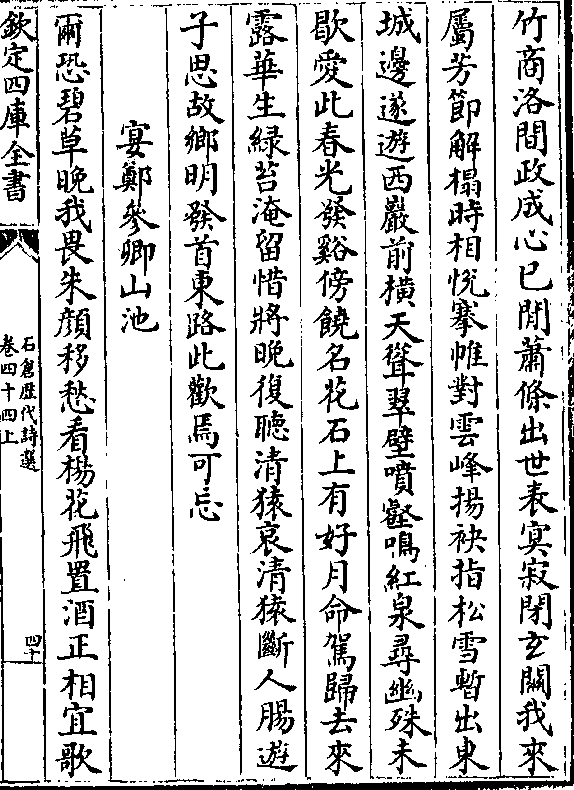 竹商洛間政成心已閒蕭條出世表冥寂閉玄關我來
屬芳節解榻時相悅褰帷對雲峰揚袂指松雪暫出東
城邊遂遊西巖前橫天聳翠壁噴壑鳴紅泉尋幽殊未
歇愛此春光發谿傍饒名花石上有好月命駕歸去來
露華生綠苔淹留惜將晚復聽清猿哀清猿斷人腸遊
子思故鄉明發首東路此歡焉可忘
宴鄭參卿山池
爾恐碧草晚我畏朱顏移愁看楊花飛置酒正相宜歌
欽定四庫全書
石倉歷代詩選
卷四十四上
四十